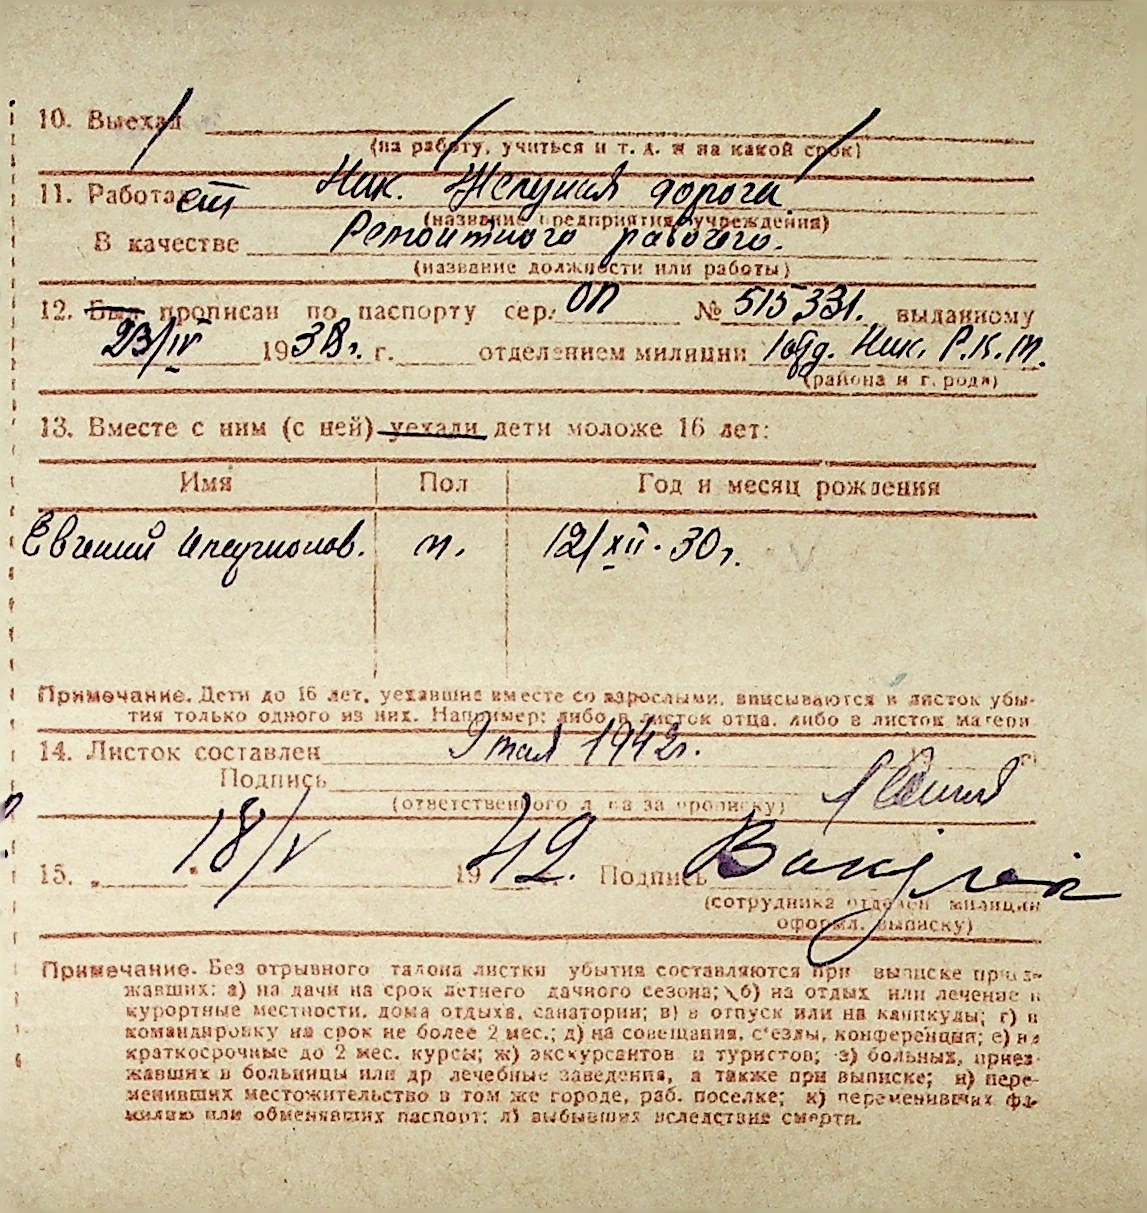 10. Выехал
(на работу, учиться и т. д. и на какой срок)
11. Работает Ник. Желуная дорога.
(название предприятия, учреждения)
В качестве Ремонтного рабочего.
(название должности или работы)
12. Был прописан по паспорту сер. ОП № 515331. выданному
23/IV 1938г. г. отделением милиции Ник. Р.К.М.
(района и города)
13. Вместе с ним (с ней) уехали дети моложе 16 лет:
Имя Пол Год и месяц рождения
Евгений м. 12/XII. 30г.
Примечание. Дети до 16 лет, уехавшие вместе со взрослыми, вписываются в листок убы-
тия только одного из них. Например: либо в листок отца, либо в листок матери.
14. Листок составлен 9 мая 1942г.
Подпись
(ответственного лица за прописку)
15. 18/V 1942. Подпись
(сотрудника отделен. милиции
оформл. выписку)
Примечание. Без отрывного талона листки убытия составляются при выписке приез-
жавших: а) на дачи на срок летнего дачного сезона; б) на отдых или лечение в
курортные местности, дома отдыха, санатории; в) в отпуск или на каникулы; г) в
командировку на срок не более 2 мес.; д) на совещания, с'езды, конференции; е) на
краткосрочные до 2 мес. курсы; ж) экскурсантов и туристов; з) больных, приез-
жавших в больницы или др лечебные заведения, а также при выписке; и) пере-
менивших местожительство в том же городе, раб. поселке; к) переменивших фа-
милию или обменявших паспорт; л) выбывших вследствие смерти.